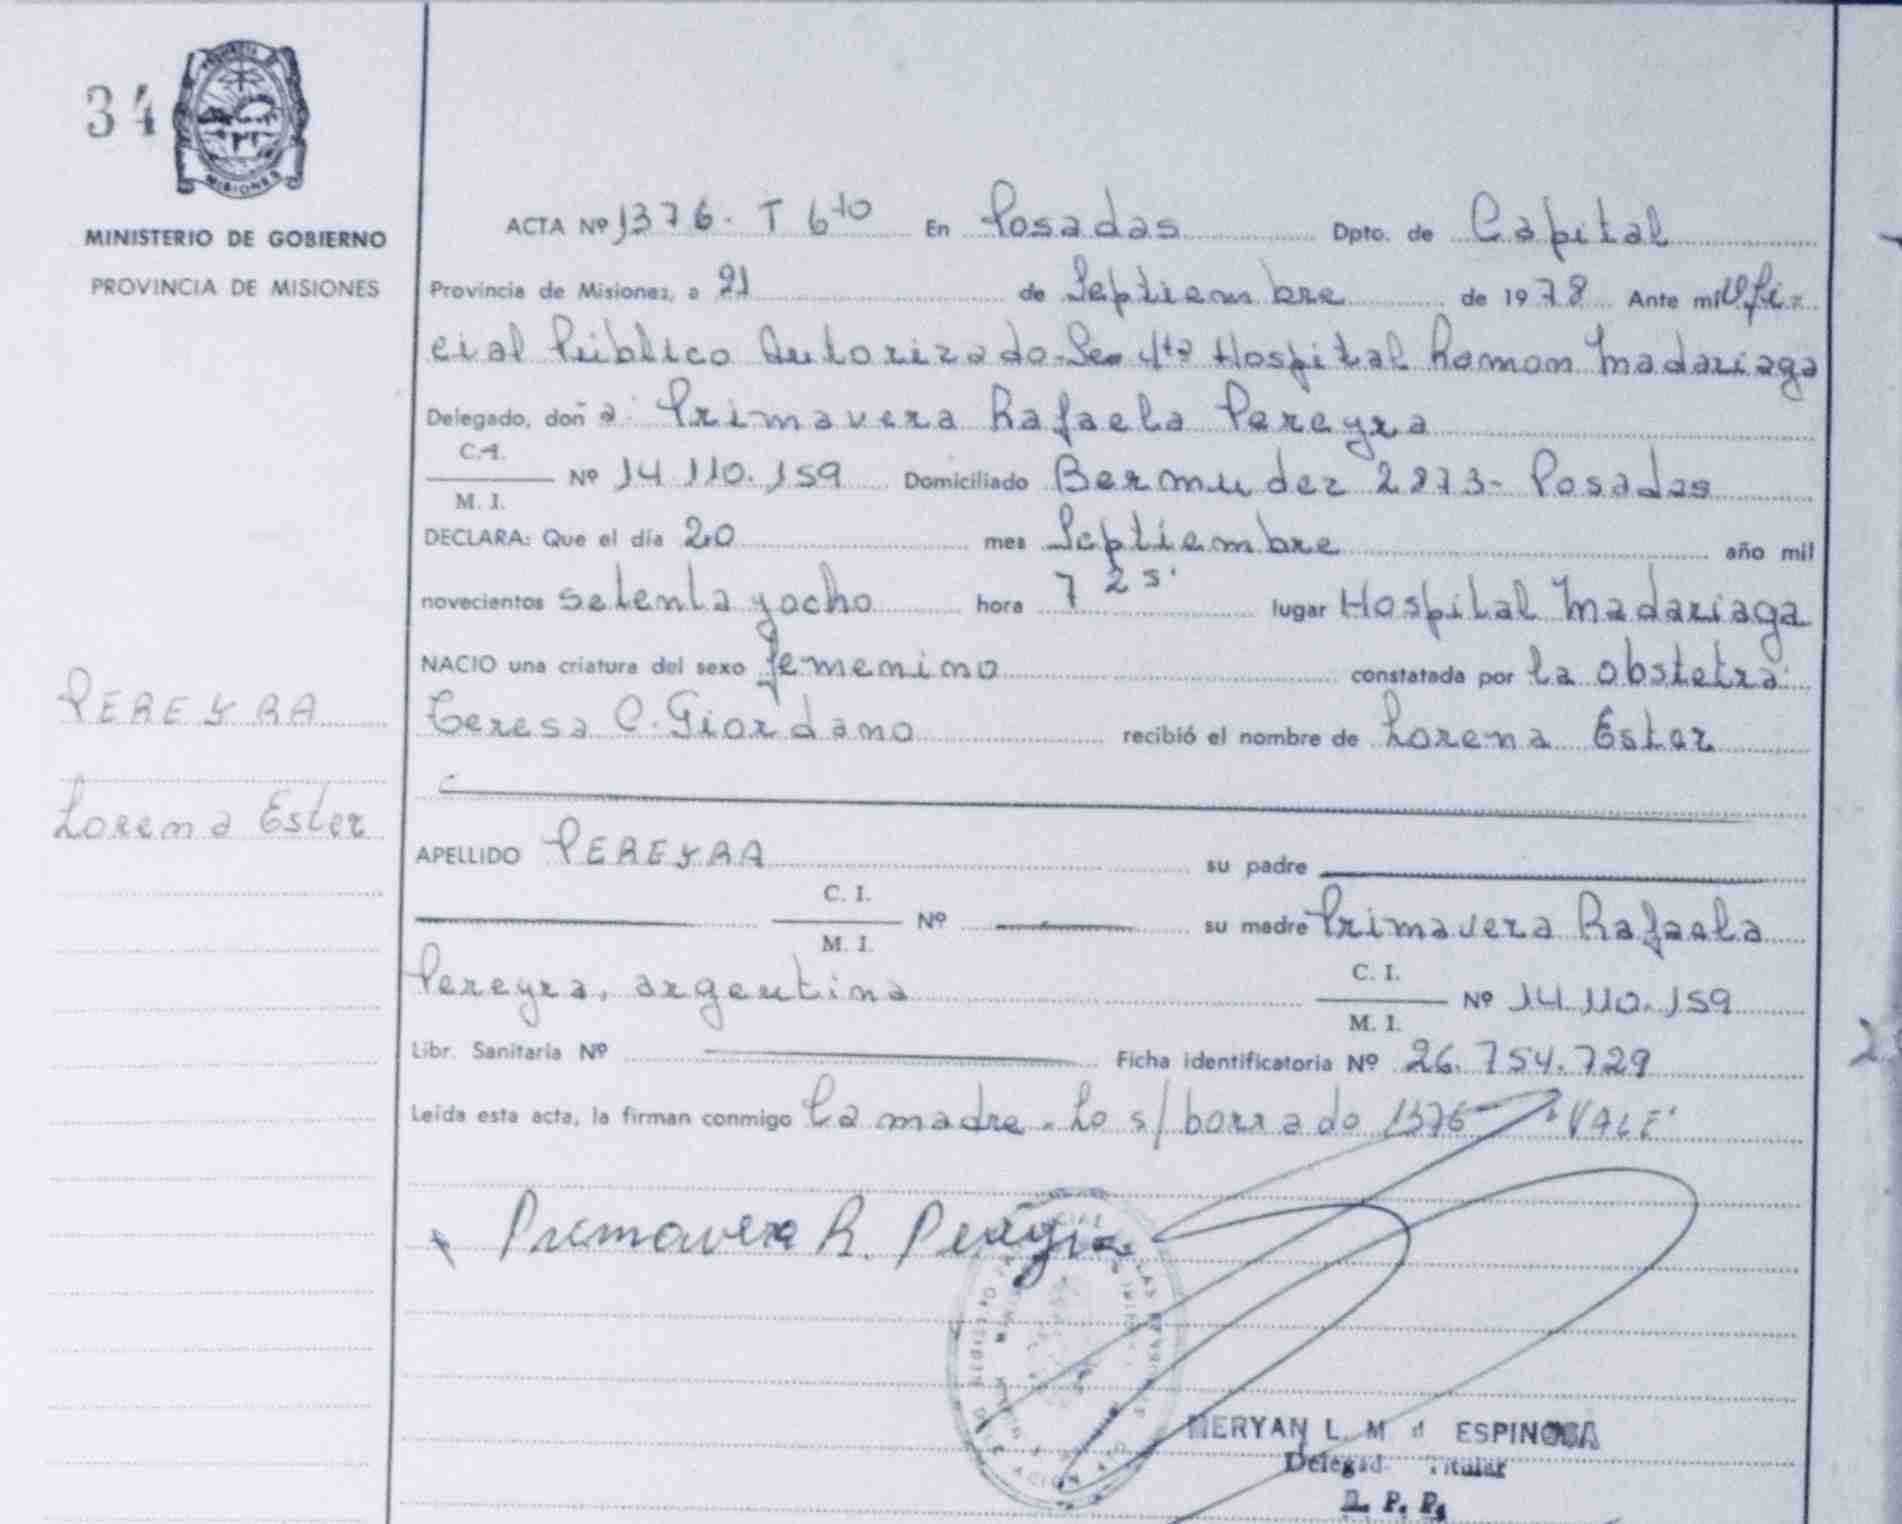 34
MISIONES
MINISTERIO DE GOBIERNO
PROVINCIA DE MISIONES
PEREYRA
Lorena Ester
ACTA Nº 1376. T 6to En Posadas Dpto. de Capital
Provincia de Misiones, a 21 de Septiembre de 1978 Ante mi Ofi-
cial Público Autorizado Sec 4ta Hospital Ramon Madariaga
Delegado, doña: Primavera Rafaela Pereyra
C.I.
M. I.
Nº 14.110.159 Domiciliado Bermudez 2873- Posadas
DECLARA: Que el día 20 mes Septiembre año mil
novecientos setenta y ocho hora 7 25. lugar Hospital Madariaga
NACIO una criatura del sexo femenino constatada por la obstetra
Teresa C. Giordano recibió el nombre de Lorena Ester
APELLIDO PEREYRA su padre
C. I.
M. I.
Nº su madre Primavera Rafaela
Pereyra, argentina
C. I.
M. I.
Nº 14.110.159
Libr. Sanitaria Nº Ficha identificatoria Nº 26.754.729
Leída esta acta, la firman conmigo la madre. Lo s/borrado 1376 "VALE"
Primavera R. Pereyra
MERYAN L. M d ESPINOSA
Delegad Titular
R. P. P.